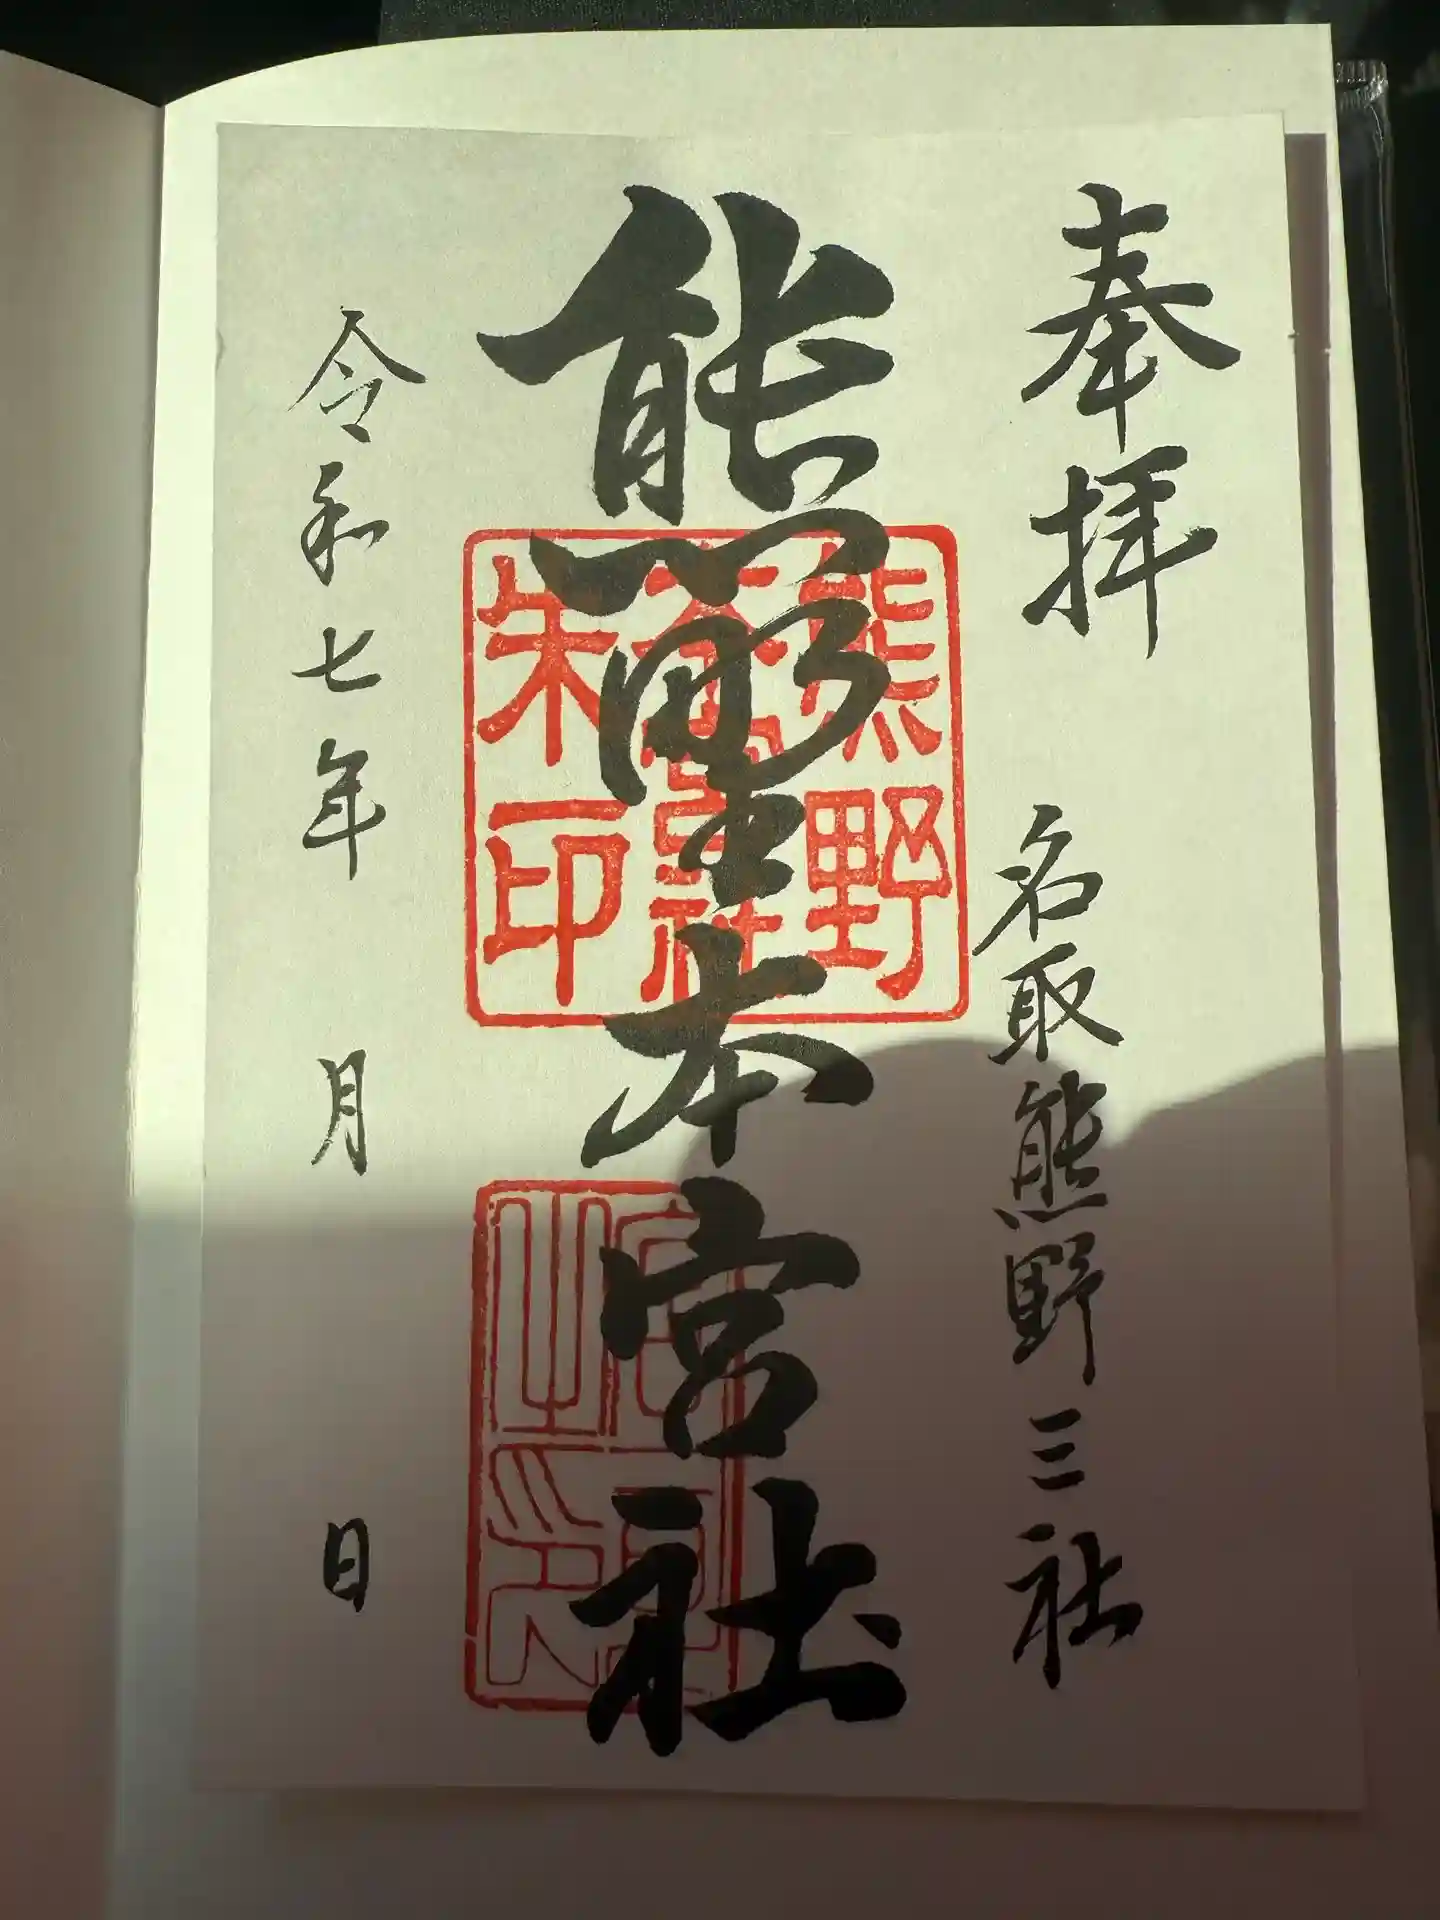 奉拝
名取熊野三社
熊野本宮社
熊野
本宮社
朱印
令和七年 月 日